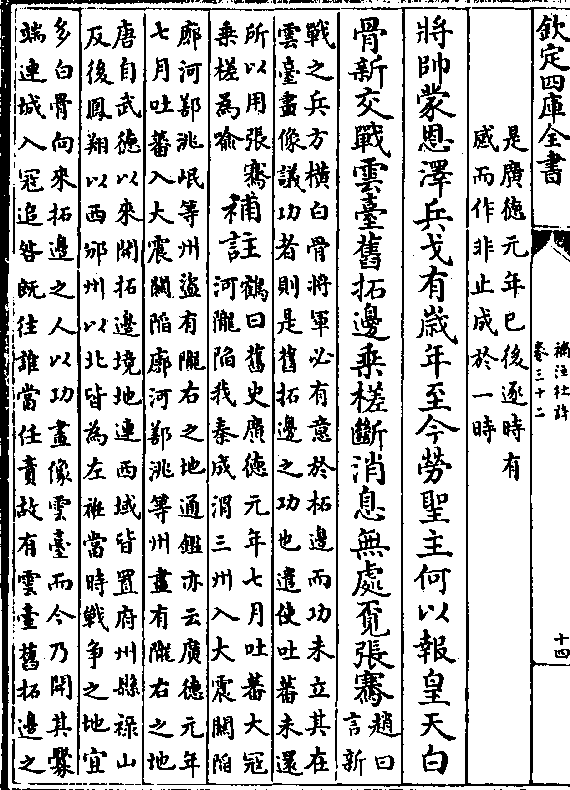 欽定四庫全書
補注杜詩
卷三十二
十四
是廣德元年已後逐時有
感而作非止成於一時
將帥蒙恩澤兵戈有歲年至今勞聖主何以報皇天白
骨新交戰雲臺舊拓邊乘槎斷消息無處覓張騫
趙曰
言新
戰之兵方橫白骨將軍必有意於拓邊而功未立其在
雲臺畫像議功者則是舊拓邊之功也遣使吐蕃未還
所以用張騫
乘槎為喻
補註
鶴曰舊史廣德元年七月吐蕃大冦
河隴陷我秦成渭三州入大震關陷
廊河鄯洮岷等州盜有隴右之地通鑑亦云廣德元年
七月吐蕃入大震關陷廓河鄯洮等州盡有隴右之地
唐自武德以來開拓邊境地連西域皆置府州縣祿山
反後鳳翔以西邠州以北皆為左衽當時戰爭之地宜
多白骨向來拓邊之人以功畫像雲臺而今乃開其釁
端連城入冦追咎既往誰當任責故有雲臺舊拓邊之